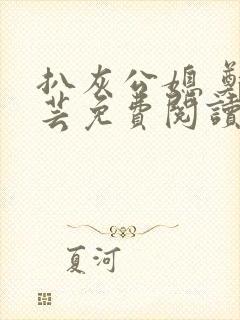 扒灰公媳
芸免費閱讀
夏河